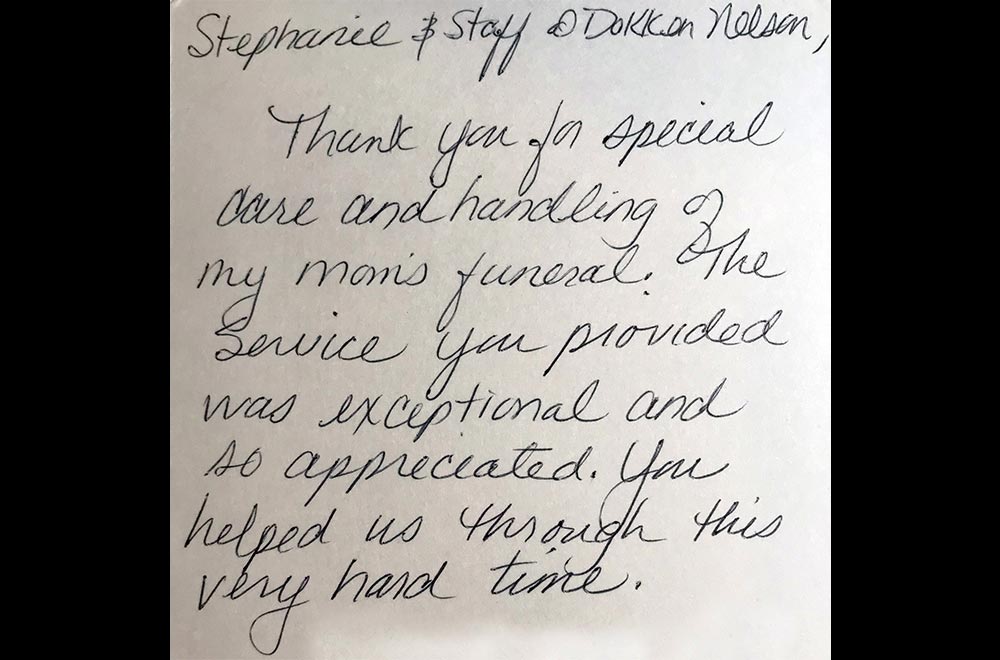 Stephanie & Staff @ Dokken Nelson,
Thank you for special
care and handling of
my mom's funeral. The
Service you provided
was exceptional and
so appreciated. You
helped us through this
very hard time.